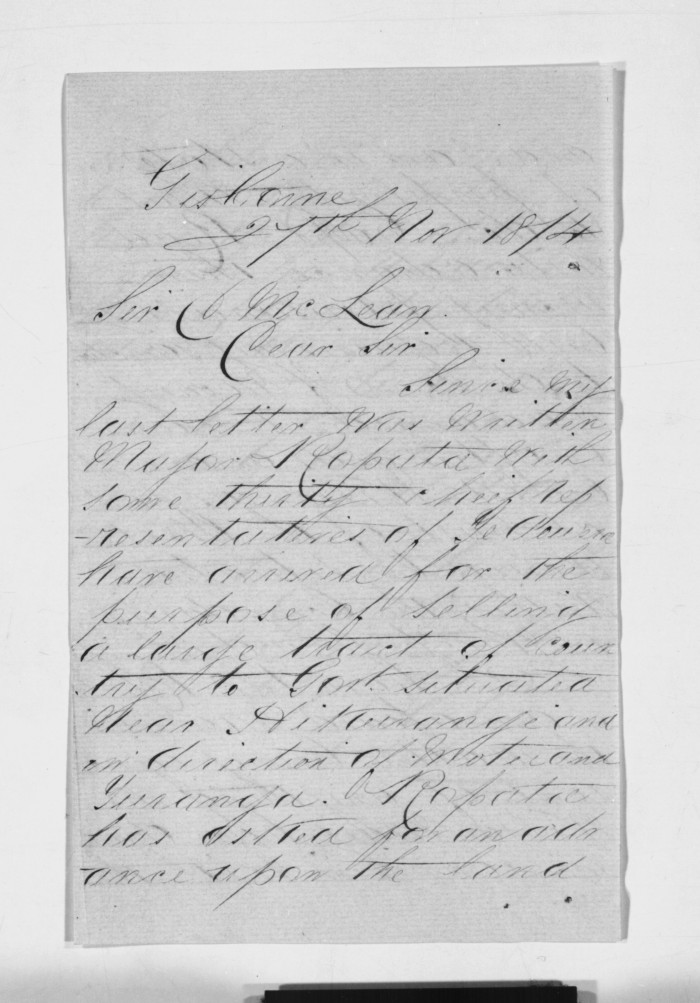 Gisborne
27th Nov. 1874
Sir D McLean.
Dear Sir
Since my
last letter was written
Major Ropata with
some thirty chief rep
-resentatives of
have arrived for the
purpose of selling
a large tract of coun
try to Govt. situated
near Hikurangi and
in direction of Motu and
Turanga. Ropata
has asked for an adv
-ance upon the land